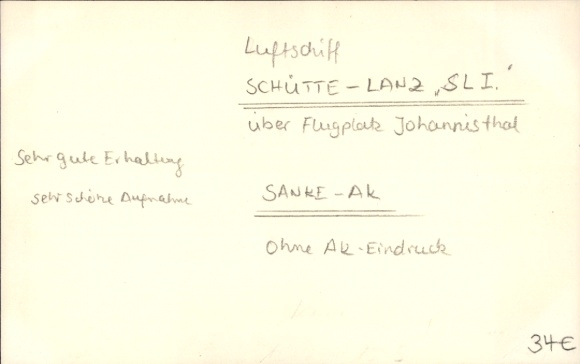 Luftschiff
SCHÜTTE-LANZ „SL I.“
über Flugplatz Johannisthal
Sehr gute Erhaltung
sehr schöne Aufnahme
SANKE-AK
Ohne AK-Eindruck
34€